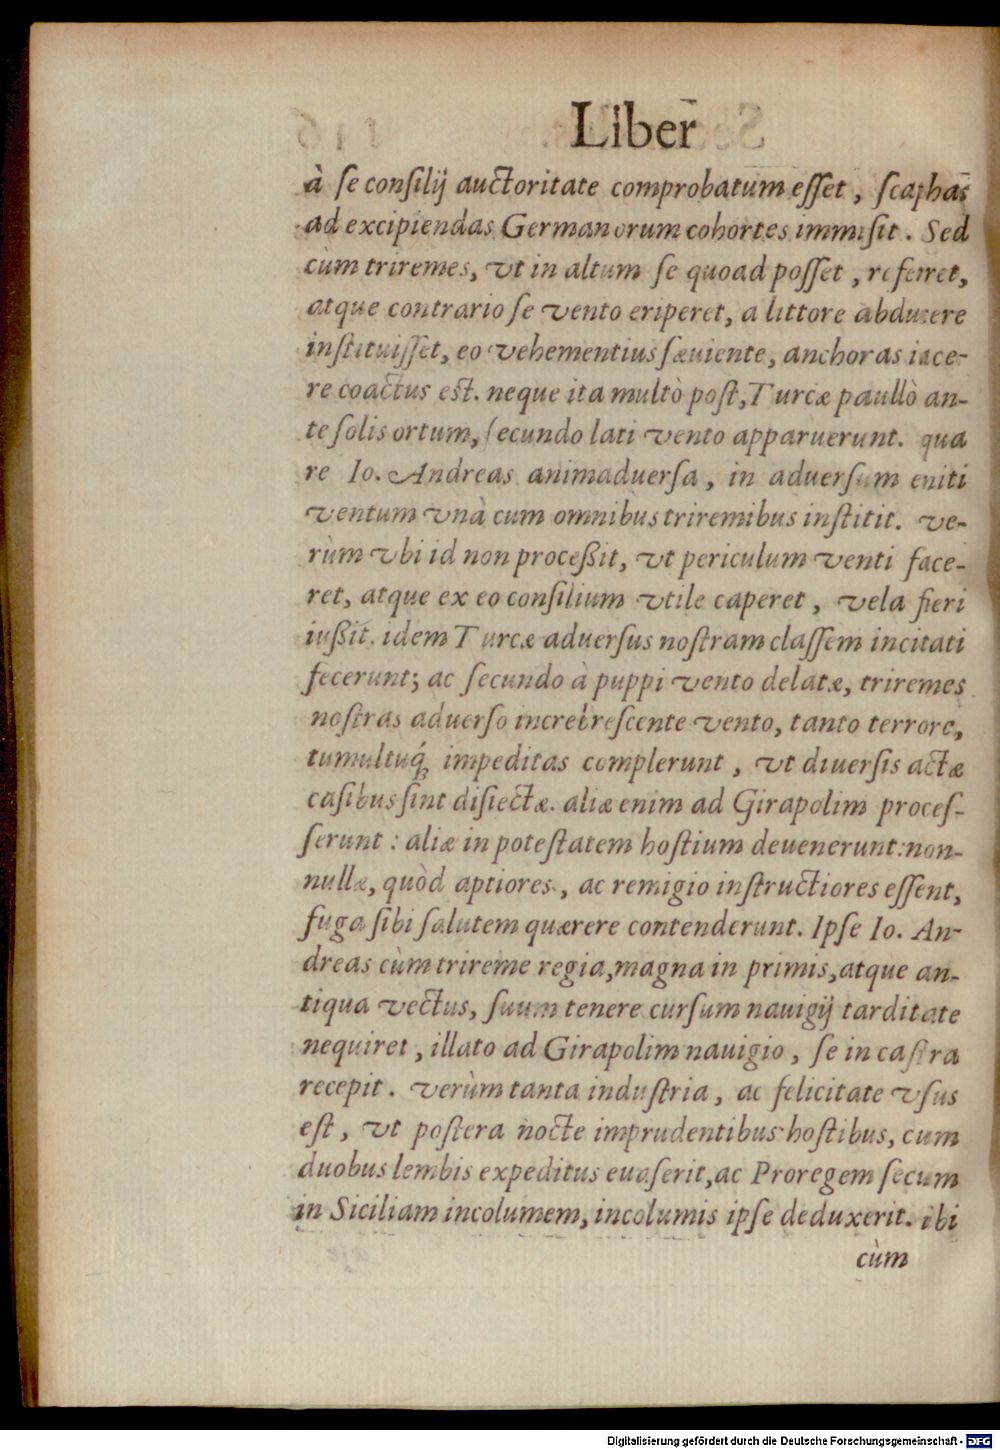 Liber
à ſe conſilij auctoritate comprobatum eſſet, ſcaphas
ad excipiendas Germanorum cohortes immiſit. Sed
cùm triremes, vt in altum ſe quoad poſſet, referret,
atque contrario ſe vento eriperet, a littore abducere
inſtituiſſet, eo vehementius ſæuiente, anchoras iace-
re coactus eſt. neque ita multò poſt, Turcæ paullò an-
te ſolis ortum, ſecundo lati vento apparuerunt. qua
re Io. Andreas animaduerſa, in aduerſum eniti
ventum vnà cum omnibus triremibus inſtitit. ve-
rùm vbi id non proceßit, vt periculum venti face-
ret, atque ex eo conſilium vtile caperet, vela fieri
iußit. idem Turcæ aduerſus noſtram claſſem incitati
fecerunt; ac ſecundo à puppi vento delatæ, triremes
noſtras aduerſo increbreſcente vento, tanto terrore,
tumultuq́ꝫ impeditas complerunt, vt diuerſis actæ
caſibus ſint diſiectæ. aliæ enim ad Girapolim proceſ-
ſerunt: aliæ in poteſtatem hoſtium deuenerunt: non-
nullæ, quòd aptiores, ac remigio inſtructiores eſſent,
fuga ſibi ſalutem quærere contenderunt. Ipſe Io. An-
dreas cùm trireme regia, magna in primis, atque an-
tiqua vectus, ſuum tenere curſum nauigij tarditate
nequiret, illato ad Girapolim nauigio, ſe in caſtra
recepit. verùm tanta induſtria, ac felicitate vſus
eſt, vt poſtera nocte imprudentibus hoſtibus, cum
duobus lembis expeditus euaſerit, ac Proregem ſecum
in Siciliam incolumem, incolumis ipſe deduxerit. ibi
cùm
Digitalisierung gefördert durch die Deutsche Forschungsgemeinschaft - DFG